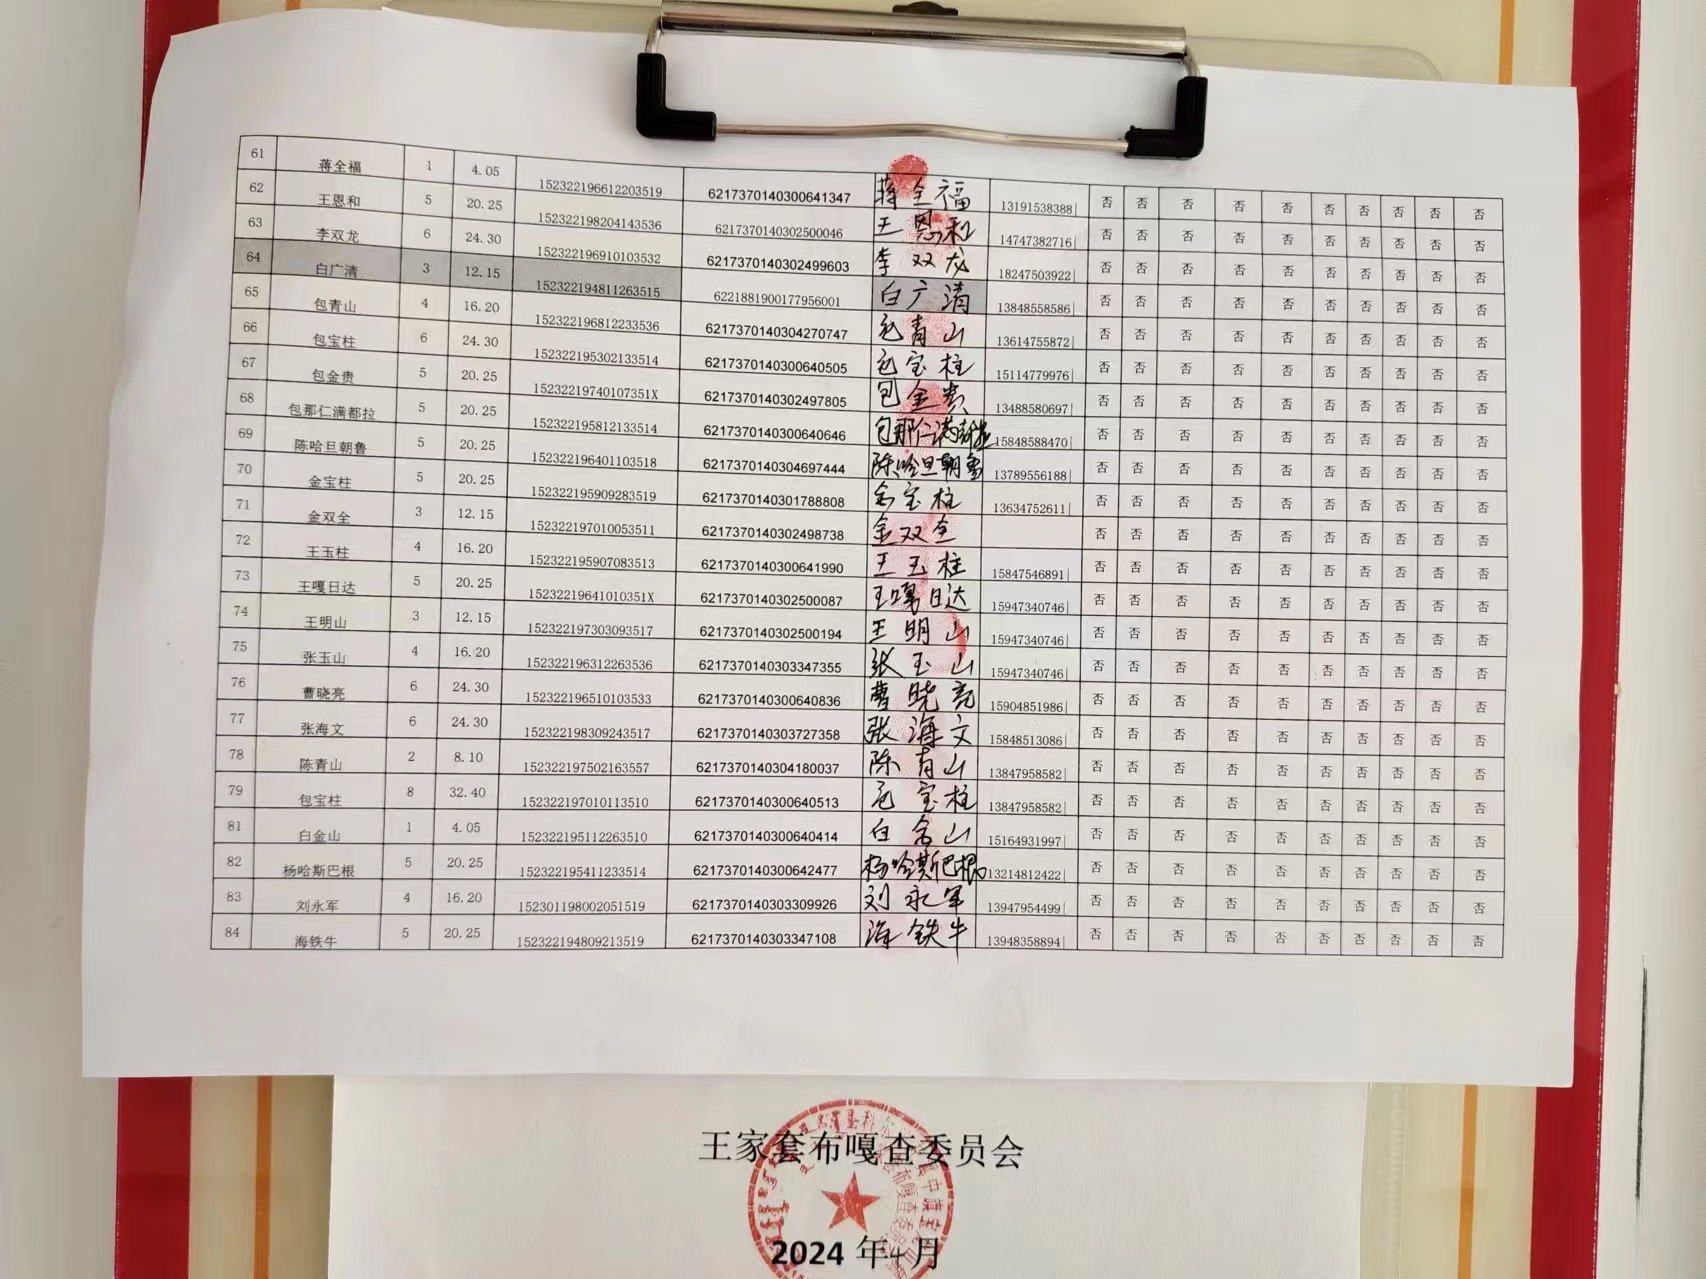 61 蒋全福 1 4.05 152322196612203519 6217370140300641347 蒋全福 13191538388 否 否 否 否 否 否 否 否 否 否
62 王恩和 5 20.25 152322198204143536 6217370140302500046 王恩和 14747382716 否 否 否 否 否 否 否 否 否 否
63 李双龙 6 24.30 152322196910103532 6217370140302499603 李双龙 18247503922 否 否 否 否 否 否 否 否 否 否
64 白广清 3 12.15 152322194811263515 6221881900177956001 白广清 13848558586 否 否 否 否 否 否 否 否 否 否
65 包青山 4 16.20 152322196812233536 6217370140304270747 包青山 13614755872 否 否 否 否 否 否 否 否 否 否
66 包宝柱 6 24.30 152322195302133514 6217370140300640505 包宝柱 15114779976 否 否 否 否 否 否 否 否 否 否
67 包金贵 5 20.25 15232219740107351X 6217370140302497805 包金贵 13488580697 否 否 否 否 否 否 否 否 否 否
68 包那仁满都拉 5 20.25 152322195812133514 6217370140300640646 包那仁满都拉 15848588470 否 否 否 否 否 否 否 否 否 否
69 陈哈旦朝鲁 5 20.25 152322196401103518 6217370140304697444 陈哈旦朝鲁 13789556188 否 否 否 否 否 否 否 否 否 否
70 金宝柱 5 20.25 152322195909283519 6217370140301788808 金宝柱 13634752611 否 否 否 否 否 否 否 否 否 否
71 金双全 3 12.15 152322197010053511 6217370140302498738 金双全 否 否 否 否 否 否 否 否 否 否
72 王玉柱 4 16.20 152322195907083513 6217370140300641990 王玉柱 15847546891 否 否 否 否 否 否 否 否 否 否
73 王嘎日达 5 20.25 15232219641010351X 6217370140302500087 王嘎日达 15947340746 否 否 否 否 否 否 否 否 否 否
74 王明山 3 12.15 152322197303093517 6217370140302500194 王明山 15947340746 否 否 否 否 否 否 否 否 否 否
75 张玉山 4 16.20 152322196312263536 6217370140303347355 张玉山 15947340746 否 否 否 否 否 否 否 否 否 否
76 曹晓亮 6 24.30 152322196510103533 6217370140300640836 曹晓亮 15904851986 否 否 否 否 否 否 否 否 否 否
77 张海文 6 24.30 152322198309243517 6217370140303727358 张海文 15848513086 否 否 否 否 否 否 否 否 否 否
78 陈青山 2 8.10 152322197502163557 6217370140304180037 陈青山 13847958582 否 否 否 否 否 否 否 否 否 否
79 包宝柱 8 32.40 152322197010113510 6217370140300640513 包宝柱 13847958582 否 否 否 否 否 否 否 否 否 否
81 白金山 1 4.05 152322195112263510 6217370140300640414 白金山 15164931997 否 否 否 否 否 否 否 否 否 否
82 杨哈斯巴根 5 20.25 152322195411233514 6217370140300642477 杨哈斯巴根 13214812422 否 否 否 否 否 否 否 否 否 否
83 刘永军 4 16.20 152301198002051519 6217370140303309926 刘永军 13947954499 否 否 否 否 否 否 否 否 否 否
84 海铁牛 5 20.25 152322194809213519 6217370140303347108 海铁牛 13948358894 否 否 否 否 否 否 否 否 否 否
王家套布嘎查委员会
2024 年4月